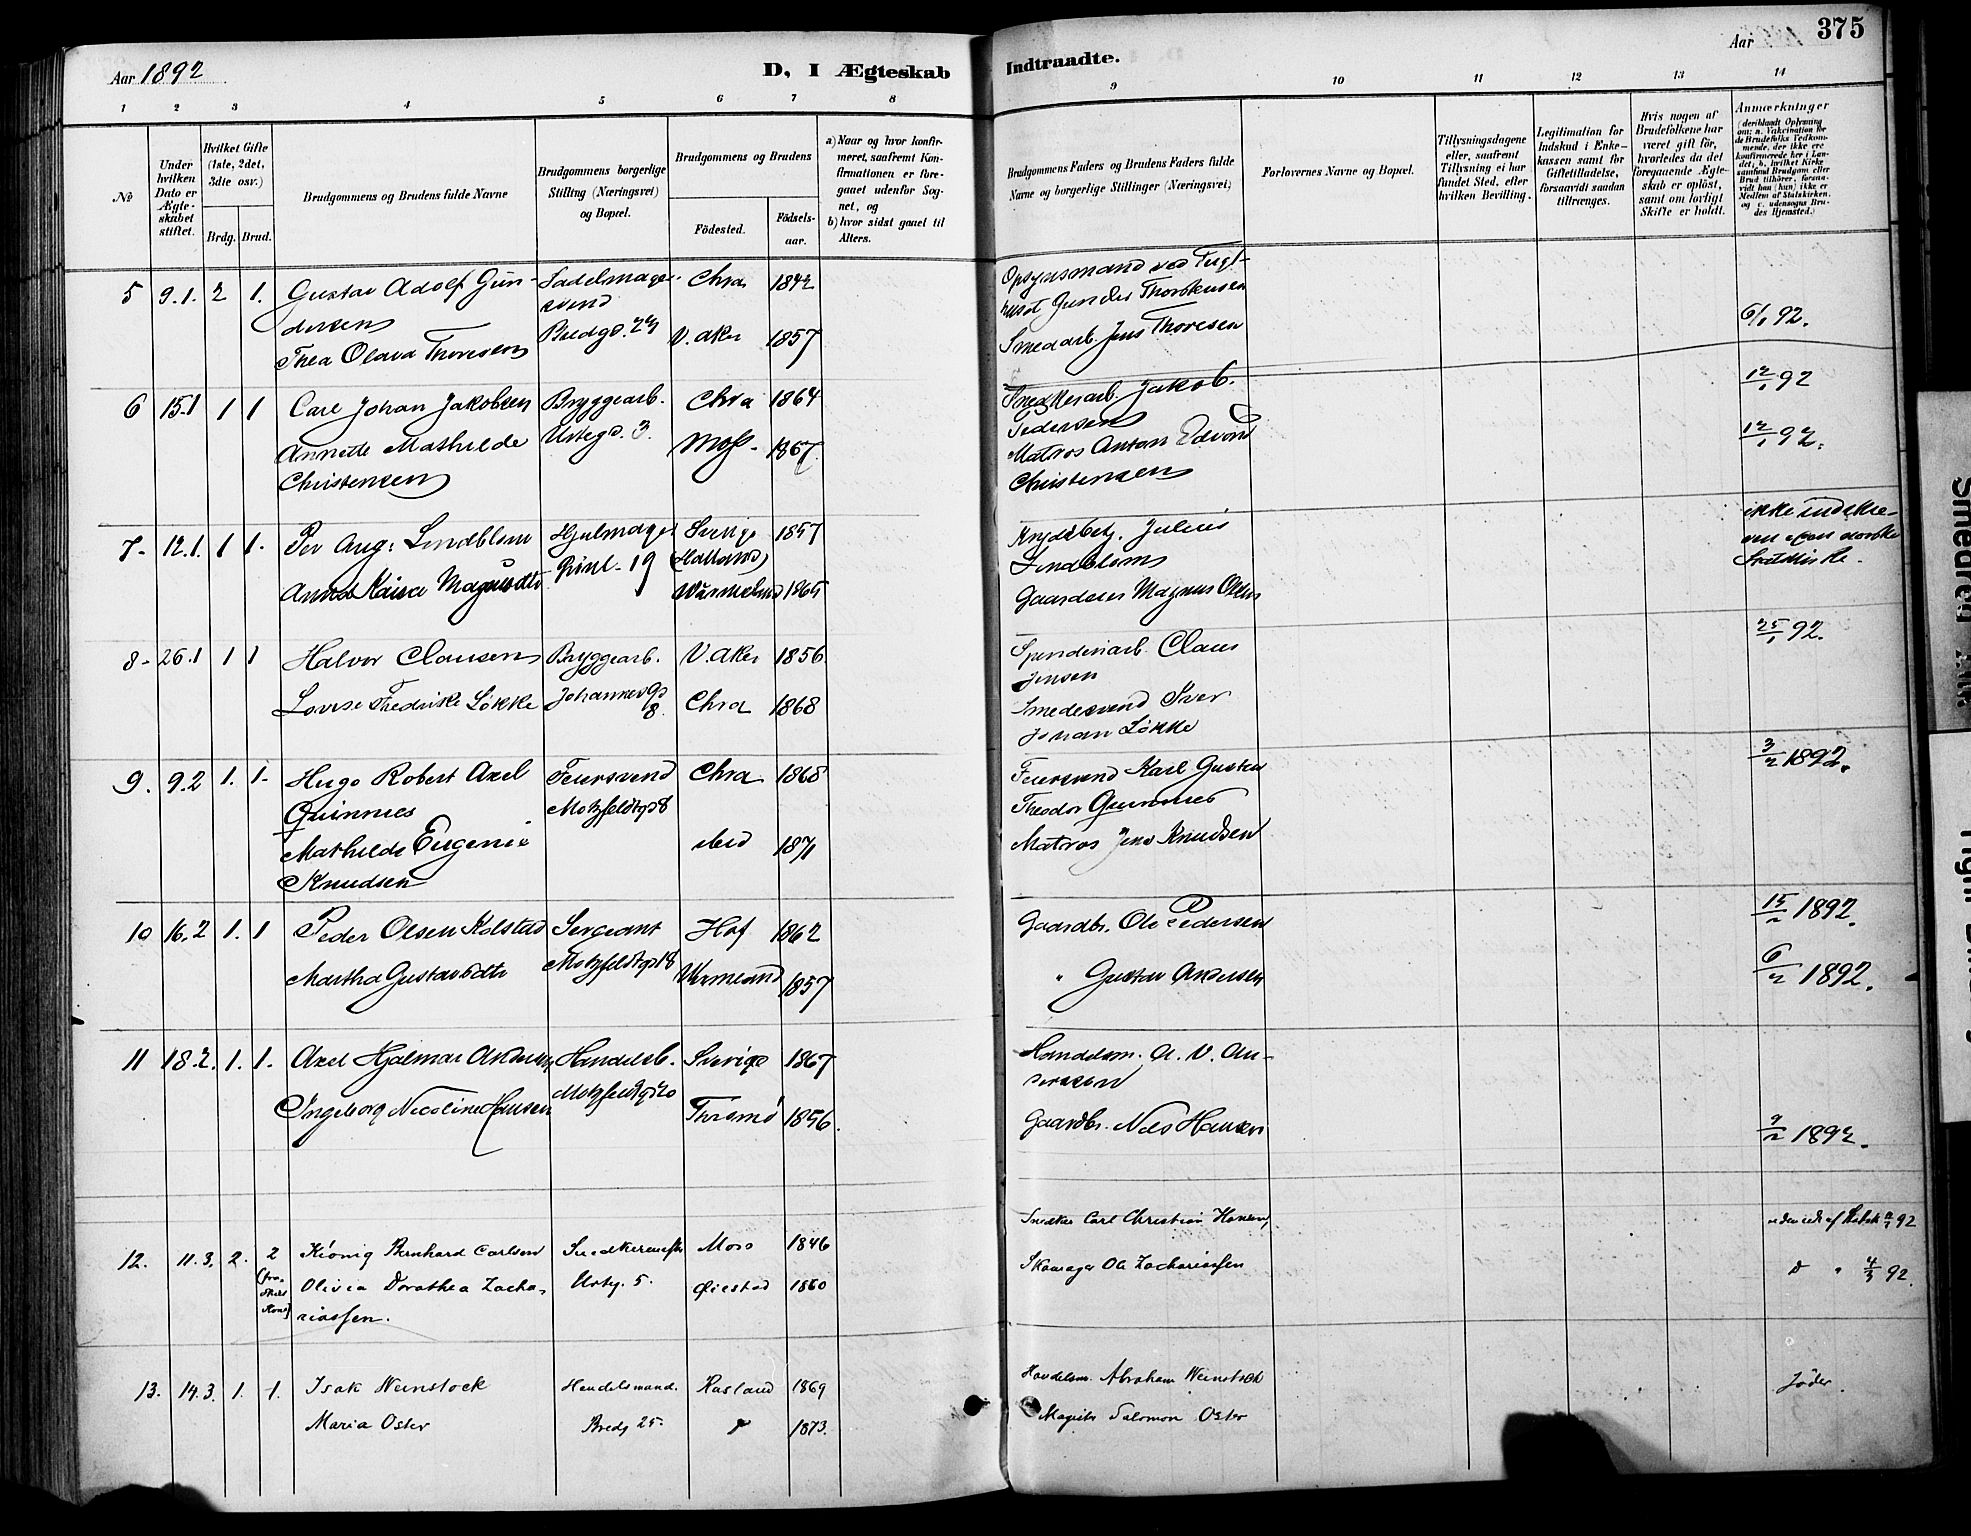 Aar 1892
D, I Ægteskab
Indtraadte.
Aar
375
1 2 3 4 5 6 7 8 9 10 11 12 13 14
No
Under hvilken Dato er Ægteskabet stiftet.
Hvilket Gifte (1ste, 2det, 3die osv.)
Brdg. Brud.
Brudgommens og Brudens fulde Navne
Brudgommens borgerlige Stilling (Næringsvei) og Bopæl.
Brudgommens og Brudens
Födested.
Födsels-aar.
a) Naar og hvor konfirmeret, saafremt Konfirmationen er foregaaet udenfor Sognet, og
b) hvor sidst gaaet til Alters.
Brudgommens Faders og Brudens Faders fulde Navne og borgerlige Stillinger (Næringsvei)
Forlovernes Navne og Bopæl.
Tillysningsdagene eller, saafremt Tillysning ei har fundet Sted, efter hvilken Bevilling.
Legitimation for Indskud i Enkekassen samt for Giftetilladelse, forsaavidt saadan tiltrænges.
Hvis nogen af Brudefolkene har været gift för, hvorledes da det foregaaende Ægteskab er oplöst, samt om lovligt Skifte er holdt.
Anmærkninger
(deriblandt Oplysning om: a. Vakcination for de Brudefolks Vedkommende, der ikke ere konfirmerede her i Landet; b. hvilket Kirkesamfund Brudgom eller Brud tilhörer, forsaavidt han (hun) ikke er Medlem af Statskirken, og c. udensogns Brudes Hjemsted.)
5 9.1. 2 1. Gustav Adolf Gun- Sadelmager- Chra 1842 Opsynsmand ved
dersen svend Gundes
Thea Olava Thoresen Bredgd. 27 V. Aker 1857 Smedarb. Jens Thoresen 6/1 92.
6 15.1 1 1 Carl Johan Jakobsen Bryggearb. Chra 1864 Snedkerarb. Jakob 12/1 92
Urtegd. 3. Pedersen
Annette Mathilde Moss 1867 Matros Anton Edvard 12/1 92.
Christensen Christensen
7- 12.1. 1 1. Per Aug: Lindblom Hjulmager Sverige 1857 Julius ikke
Grønl. 19 (Halland) Lindblom
Anna Kaisa Magnusdtr Wärmeland 1865 Gaardeier Magnus Olsen
8- 26.1 1 1 Halvor Clausen Bryggearb. V. Aker 1856 Spinderiarb Claus 25/1 92.
Jensen
Lovise Fredrikke Løkke Johannesgd 8. Chra 1868 Smedesvend Iver
Johan Løkke
9. 9.2 1. 1. Hugo Robert Axel Feiersvend Chra 1868 Feiersvend Karl Gustav 3/2 1892.
Grinnies Motzfeldtgd 8 Theodor Grinnies
Mathilde Eugenie ibid 1871 Matros Jens Knudsen
Knudsen
10 16.2 1. 1 Peder Olsen Kolstad Sergeant Hof 1862 Gaardbr. Ole Pedersen 15/2 1892.
Martha Gustavsdtr Motzfeldtgd 18 Wermland 1857 " Gustav Andersen 6/2 1892.
11 18.2. 1. 1. Axel Hjalmar Andersen Handelsb. Sverige 1867 Handelsm. A. V. An-
Motzfeldtgd 20 dersen
Ingeborg Nicoline Hansen Thromø 1856. Gaardbr. Nils Hansen 9/2 1892.
12. 11.3. 2. 2 Kiønig Bernhard Carlsen Moss 1846 Snedker Carl Christian Hansen
(fraskilt Kone) Olivia Dorothea Zacha- Urtg. 5. Øiestad 1860 Skomager Ole Zachariassen D " 4/3 92.
riassen.
13. 14.3. 1. 1. Isak Weinstock Handelsmand. Rusland 1869 Handelsm. Abraham Weinstock Jøder.
Maria Oster Bredg 25. 1873. Magister Salomon Oster